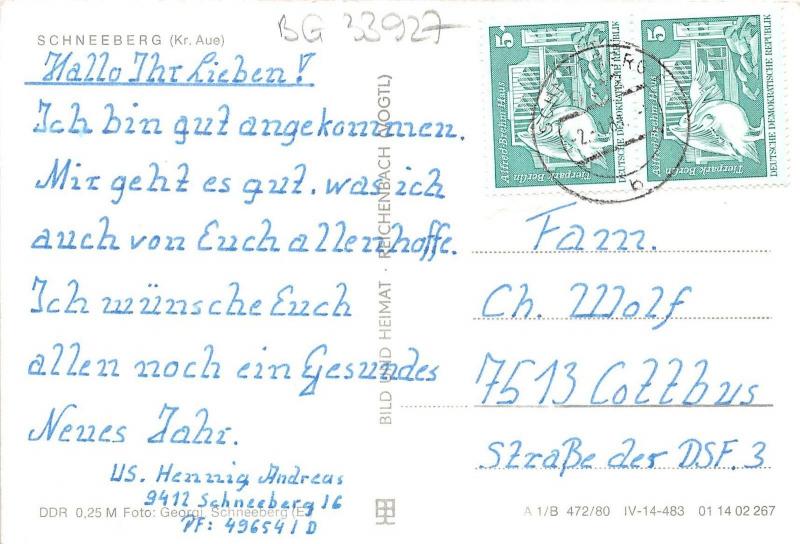 BG 33927
SCHNEEBERG (Kr. Aue)
Hallo Ihr Lieben!
Ich bin gut angekommen.
Mir geht es gut. was ich
auch von Euch allen hoffe.
Ich wünsche Euch
allen noch ein Gesundes
Neues Jahr.
US. Hennig Andreas
9412 Schneeberg 16
PF: 49654/D
DDR 0,25 M Foto: Georgi, Schneeberg (E
BILD UND HEIMAT · REICHENBACH (VOGTL)
5
Alfred-Brehm-Haus
Tierpark Berlin
DEUTSCHE DEMOKRATISCHE REPUBLIK
5
Alfred-Brehm-Haus
Tierpark Berlin
DEUTSCHE DEMOKRATISCHE REPUBLIK
b
Fam.
Ch. Wolf
7513 Cottbus
Straße der DSF. 3
A 1/B 472/80 IV-14-483 01 14 02 267